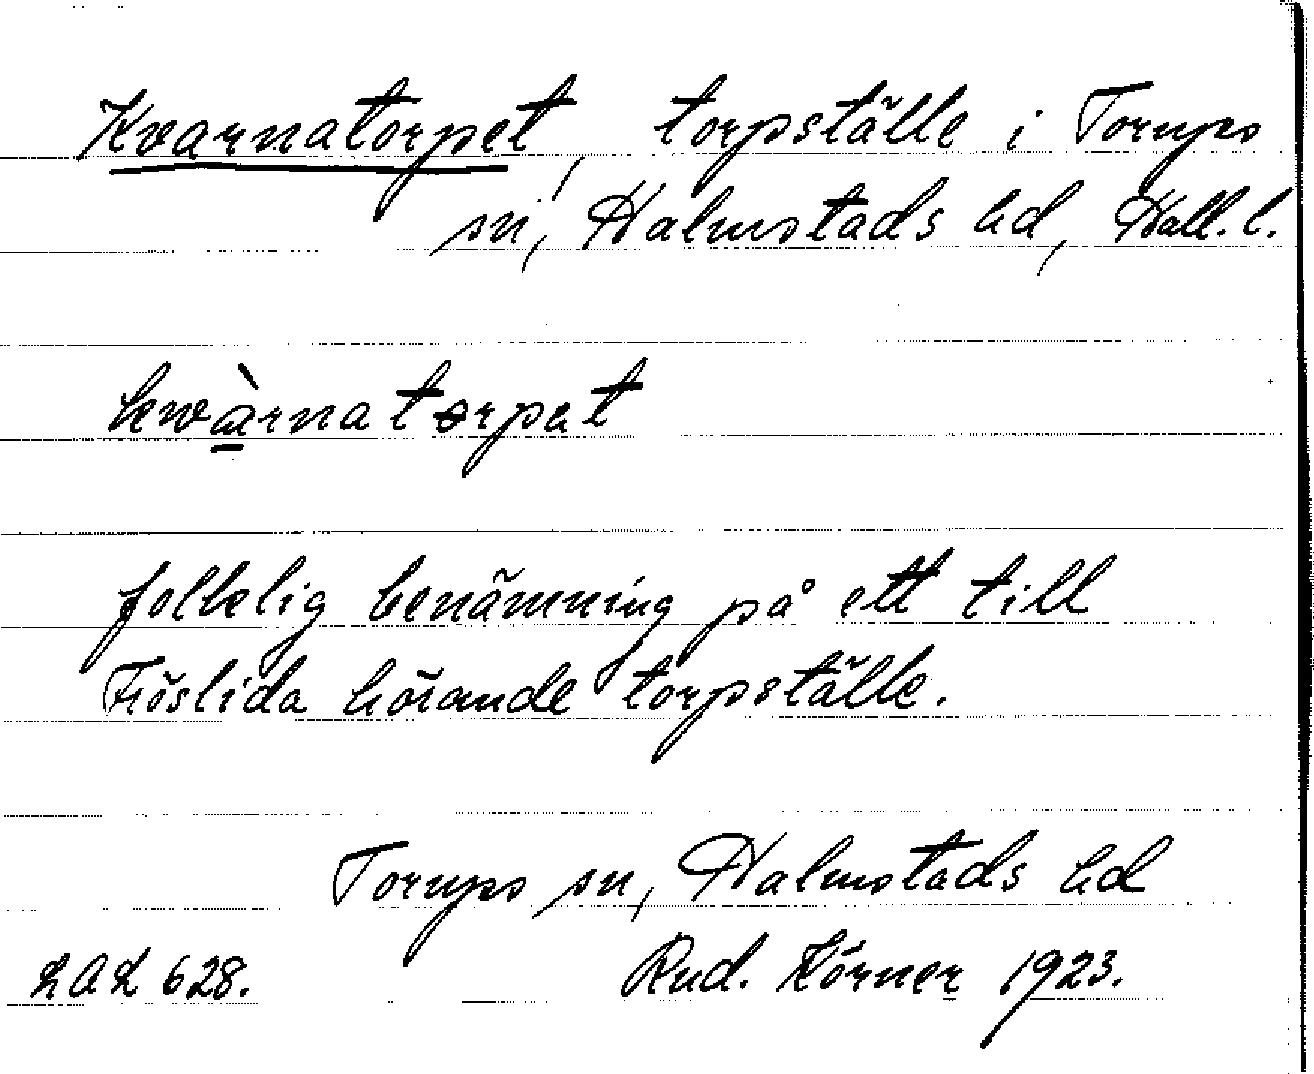 Kvarnatorpet, torpställe i Torups
sn, Halmstads hd, Hall. l.
kwàrnatorpet
folklig benämning på ett till
Fröslida hörande torpställe.
Torups sn, Halmstads hd
LAL 628. Rud. Körner 1923.